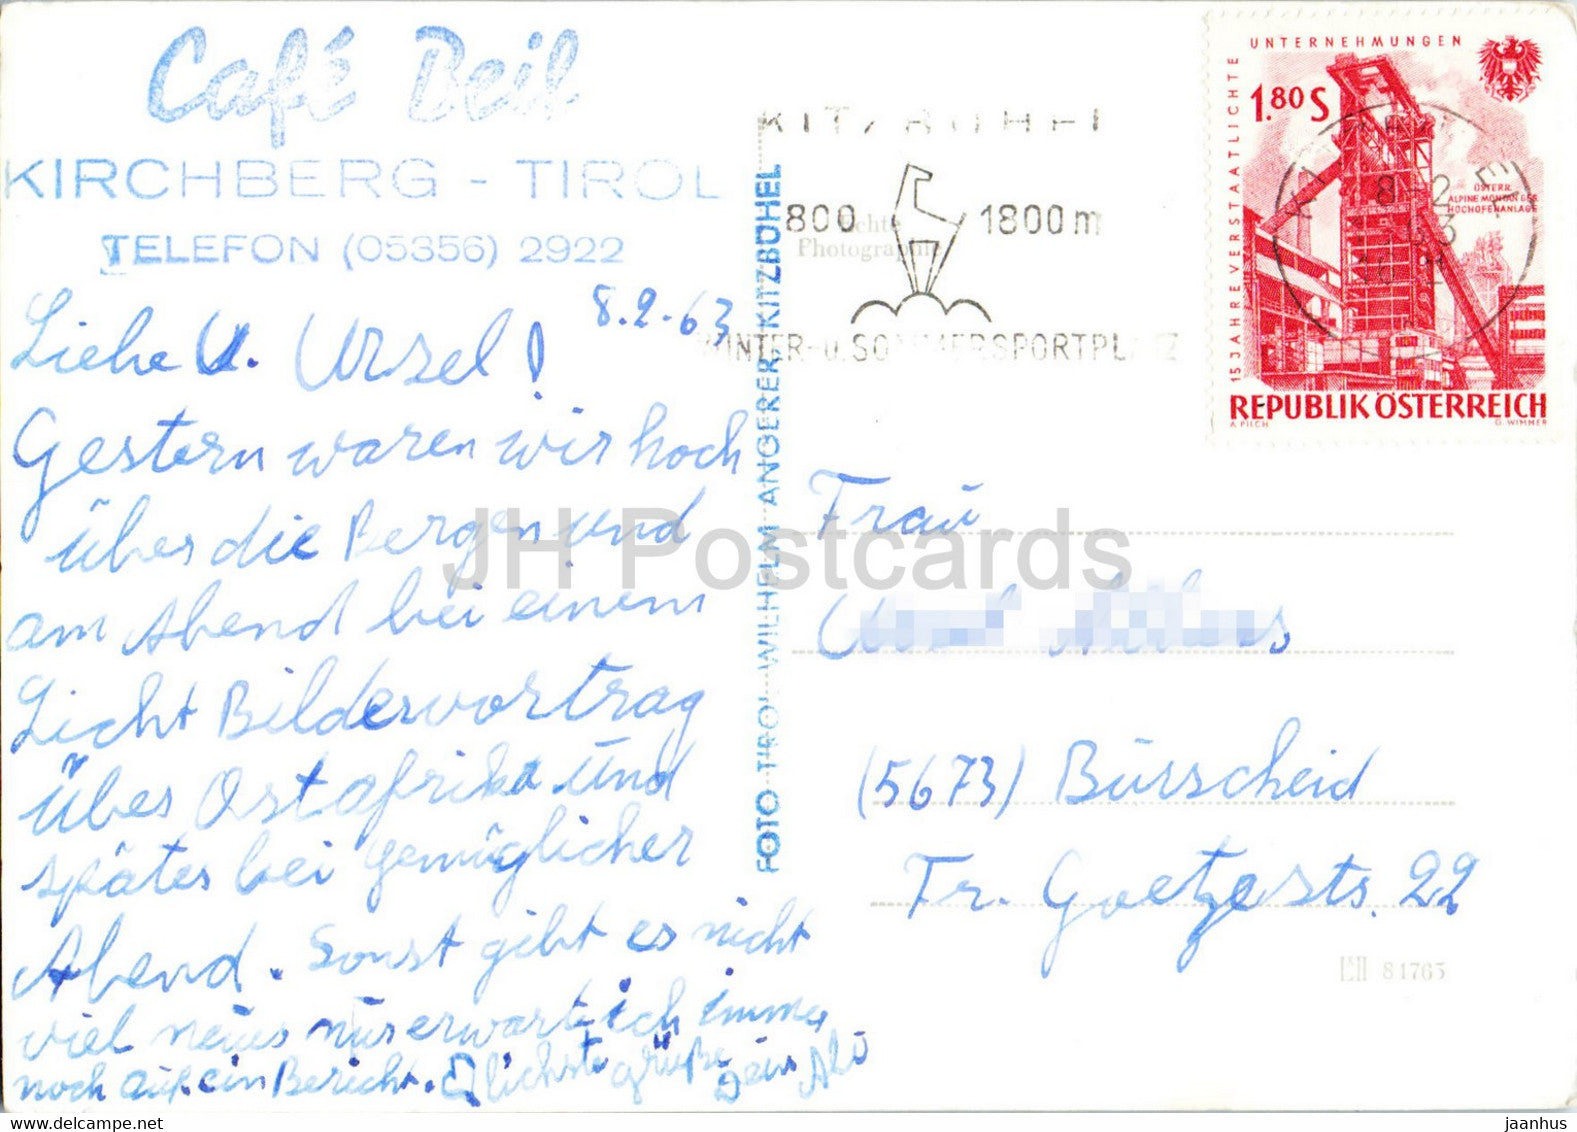 Café Beil
KIRCHBERG - TIROL
TELEFON (05356) 2922
8.2.63
Liebe U. Ursel!
Gestern waren wir hoch
über die Bergen und
am Abend bei einem
Licht Bildervortrag
über Ostafrika und
später bei gemüglicher
Abend. Sonst gibt es nicht
viel neues nur erwarte ich immer
noch auf ein Bericht.
grüße Dein Ali
FOTO TIROL WILHELM ANGERER, KITZBÜHEL
Echte
Photographie
KITZBÜHEL
800 1800 m
WINTER- u. SOMMERSPORTPLATZ
UNTERNEHMUNGEN
15 JAHRE VERSTAATLICHTE
1.80 S
ÖSTERR.
ALPINE MONTANGES.
HOCHOFENANLAGE
REPUBLIK ÖSTERREICH
A. PILCH G. WIMMER
Frau
(5673) Burscheid
Fr. Goetzestr. 22
81765
JH Postcards
www.delcampe.net
jaanhus